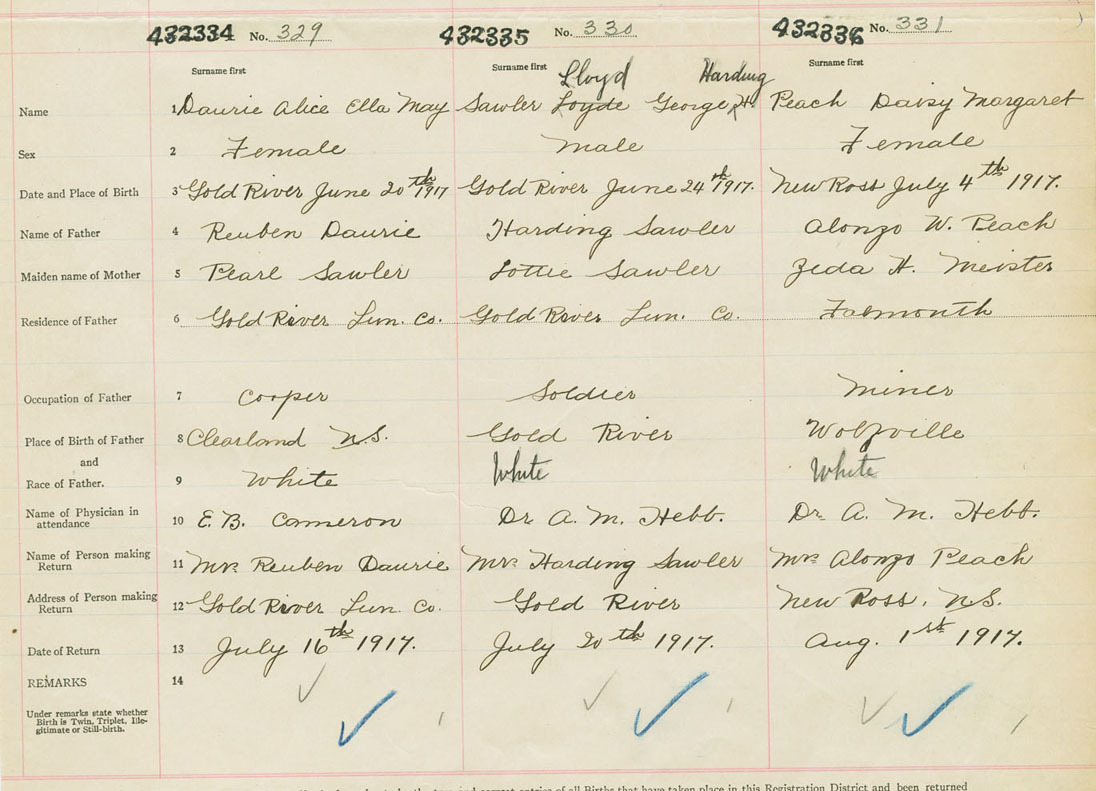 432334 No. 329 432335 No. 330 432336 No. 331
Surname first Surname first Surname first
Lloyd Harding
Name 1 Daurie Alice Ella May Sawler Loyde George H Peach Daisy Margaret
Sex 2 Female Male Female
Date and Place of Birth 3 Gold River June 20th 1917 Gold River June 24th 1917. New Ross July 4th 1917.
Name of Father 4 Reuben Daurie Harding Sawler Alonzo W. Peach
Maiden name of Mother 5 Pearl Sawler Lottie Sawler Zeda H. Meister
Residence of Father 6 Gold River Lun. Co. Gold River Lun. Co. Falmouth
Occupation of Father 7 Cooper Soldier Miner
Place of Birth of Father 8 Clearland N.S. Gold River Wolfville
and
Race of Father. 9 White White White
Name of Physician in
attendance 10 E. B. Cameron Dr. A. M. Hebb. Dr. A. M. Hebb.
Name of Person making
Return 11 Mrs Reuben Daurie Mrs Harding Sawler Mrs Alonzo Peach
Address of Person making
Return 12 Gold River Lun. Co. Gold River New Ross, N.S.
Date of Return 13 July 16th 1917. July 20th 1917. Aug. 1st 1917.
REMARKS 14
Under remarks state whether
Birth is Twin, Triplet, Ille-
gitimate or Still-birth.
entries of all Births that have taken place in this Registration District and been returned